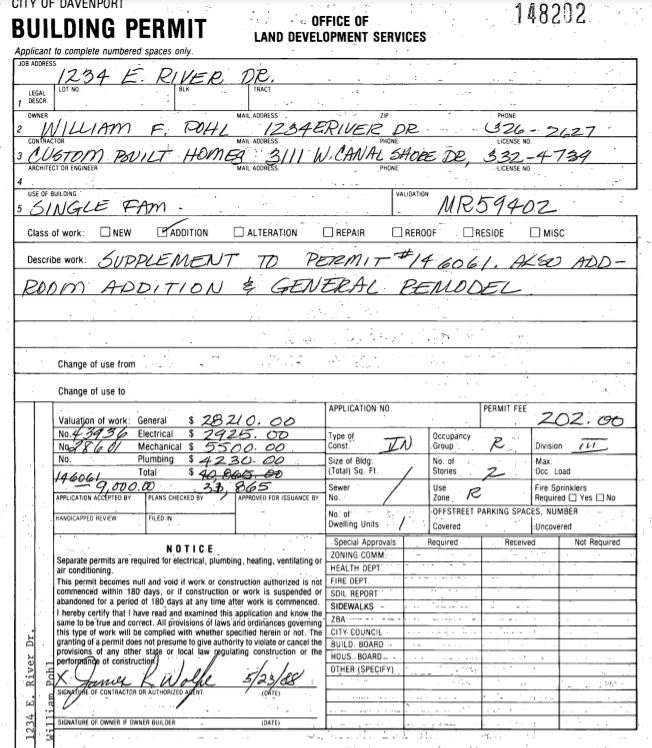 CITY OF DAVENPORT
BUILDING PERMIT
OFFICE OF
LAND DEVELOPMENT SERVICES
148202
Applicant to complete numbered spaces only.
JOB ADDRESS
1234 E. RIVER DR.
LEGAL DESCR. LOT NO. BLK TRACT
1
OWNER MAIL ADDRESS ZIP PHONE
2 WILLIAM F. POHL 1234 E RIVER DR 326-2627
CONTRACTOR MAIL ADDRESS PHONE LICENSE NO.
3 CUSTOM BUILT HOMES 3111 W. CANAL SHORE DR, 332-4739
ARCHITECT OR ENGINEER MAIL ADDRESS PHONE LICENSE NO.
4
USE OF BUILDING VALIDATION
5 SINGLE FAM - MR59402
Class of work: NEW ADDITION ALTERATION REPAIR REROOF RESIDE MISC
Describe work: SUPPLEMENT TO PERMIT #146061. ALSO ADD-
ROOM ADDITION & GENERAL REMODEL
Change of use from
Change of use to
Valuation of work: General $ 28210.00
No. 43936 Electrical $ 2925.00
No. 28601 Mechanical $ 5500.00
No. Plumbing $ 4230.00
Total $ 40,865.00
146061 - 9,000.00 31,865
APPLICATION ACCEPTED BY PLANS CHECKED BY APPROVED FOR ISSUANCE BY
HANDICAPPED REVIEW FILED IN
APPLICATION NO. PERMIT FEE 202.00
Type of Const. Occupancy Group R Division III
Size of Bldg: (Total) Sq. Ft. No. of Stories 2 Max. Occ. Load
Sewer No. Use Zone R Fire Sprinklers Required Yes No
No. of Dwelling Units 1 OFFSTREET PARKING SPACES, NUMBER
Covered Uncovered
Special Approvals Required Received Not Required
ZONING COMM.
HEALTH DEPT.
FIRE DEPT.
SOIL REPORT
SIDEWALKS
ZBA
CITY COUNCIL
BUILD. BOARD
HOUS. BOARD
OTHER (SPECIFY)
NOTICE
Separate permits are required for electrical, plumbing, heating, ventilating or
air conditioning.
This permit becomes null and void if work or construction authorized is not
commenced within 180 days, or if construction or work is suspended or
abandoned for a period of 180 days at any time after work is commenced.
I hereby certify that I have read and examined this application and know the
same to be true and correct. All provisions of laws and ordinances governing
this type of work will be complied with whether specified herein or not. The
granting of a permit does not presume to give authority to violate or cancel the
provisions of any other state or local law regulating construction or the
performance of construction.
X James R Wolfe 5/23/88
SIGNATURE OF CONTRACTOR OR AUTHORIZED AGENT (DATE)
SIGNATURE OF OWNER IF OWNER BUILDER (DATE)
1234 E. River Dr.
William Pohl